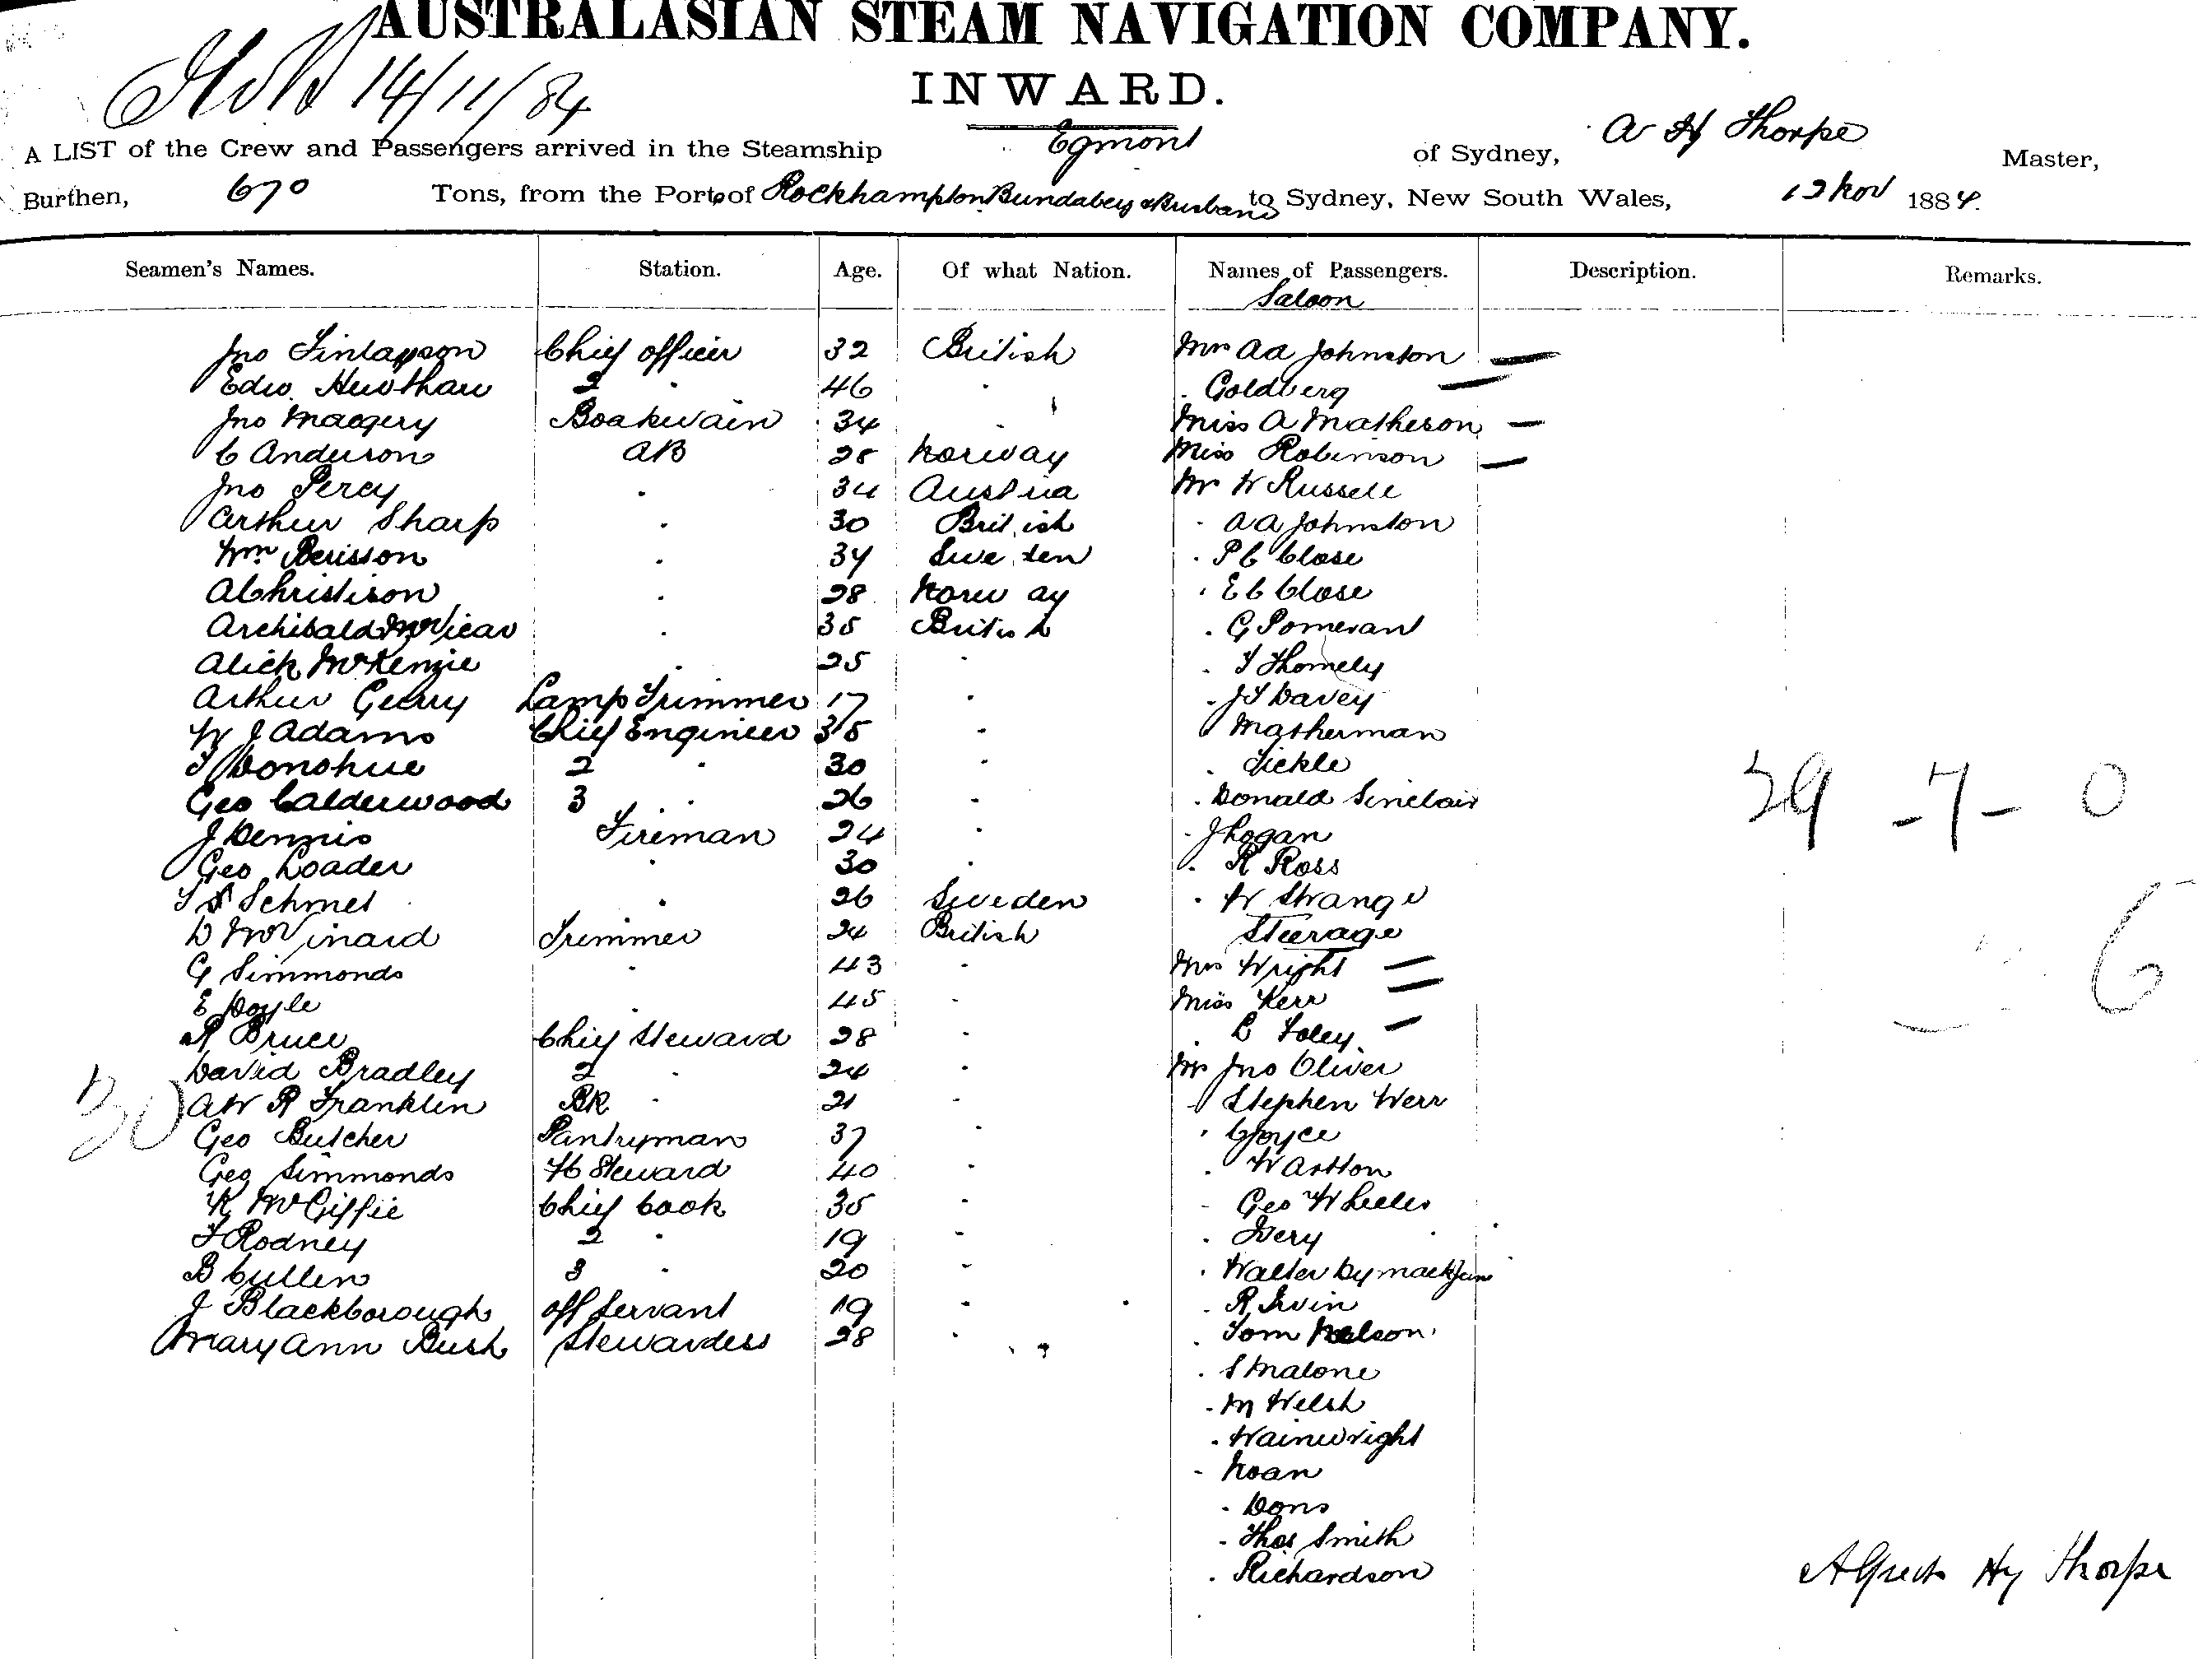 AUSTRALASIAN STEAM NAVIGATION COMPANY.
INWARD.
14/11/84
A LIST of the Crew and Passengers arrived in the Steamship Egmont of Sydney, A Hy Thorpe Master,
Burthen, 670 Tons, from the Ports of Rockhampton Bundaberg & Brisbane to Sydney, New South Wales, 12 Nov 1884.
Seamen's Names. Station. Age. Of what Nation. Names of Passengers. Description. Remarks.
Saloon
Jno Finlayson Chief officer 32 British Mrs AA Johnston —
Edw. 2 " 46 " " Goldberg —
Jno Boatswain 34 " Miss A Matheson —
C Anderson AB 28 Norway Miss Robinson —
Jno Percy " 34 Austria Mr W Russell
Arthur Sharp " 30 British " AA Johnston
Wm 34 Sweden " P C Close
A Christison " 28 Norway " E C Close
Archibald McVicar " 35 British " G Pomerant
Alick McKenzie " 25 " " T Thomely
Arthur Gerry Lamp Trimmer 17 " " J T Davey
W J Adams Chief Engineer 35 " " Matherman
T Donohue 2 " 30 " " Tickle
Geo Calderwood 3 " 26 " " Donald Sinclair
J Dennis Fireman 24 " " J Logan
Geo Loader " 30 " " R Ross
Schmel " 26 Sweden " W Strange
D McVinard Trimmer 24 British Steerage
G Simmonds " 43 " Mrs Wright —
E Doyle " 45 " Miss Kerr —
R Bruce Chief Steward 28 " " Foley —
David Bradley 2 " 24 " Mr Jno Oliver
AW R Franklin BK " 21 " " Stephen Werr
Geo Butcher Pantryman 37 " " Joyce
Geo Simmonds FC Steward 40 " " Wartton
K McGiffie Chief Cook 35 " " Geo Wheeler
F Rodney 2 " 19 " " Ivery
B Cullen 3 " 20 " " Walter Dymack Jun
J Blackborough off servant 19 " " R Irvin
Mary Ann Bush Stewardess 28 " " Tom Nelson
" S Malone
" M Welsh
" Wainwright
" Noan
" Dons
" Thos Smith
" Richardson
30
39 - 7 - 0
6
Alfred Hy Thorpe